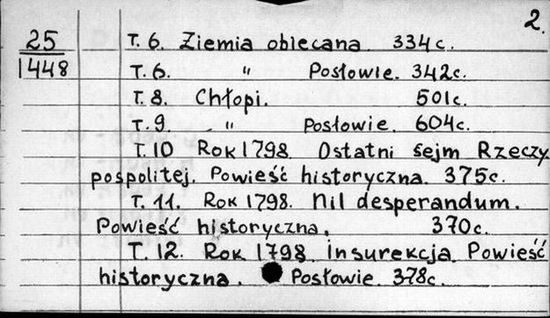 2.
25 T. 6. Ziemia obiecana 334c.
1448 T. 6. " Posłowie. 342c.
T. 8. Chłopi. 501c.
T. 9. " Posłowie. 604c.
T. 10 Rok 1798. Ostatni sejm Rzeczy
pospolitej. Powieść historyczna. 375c.
T. 11. Rok 1798. Nil desperandum.
Powieść historyczna. 370c.
T. 12. Rok 1798. insurekcja. Powieść
historyczna. Posłowie. 378c.